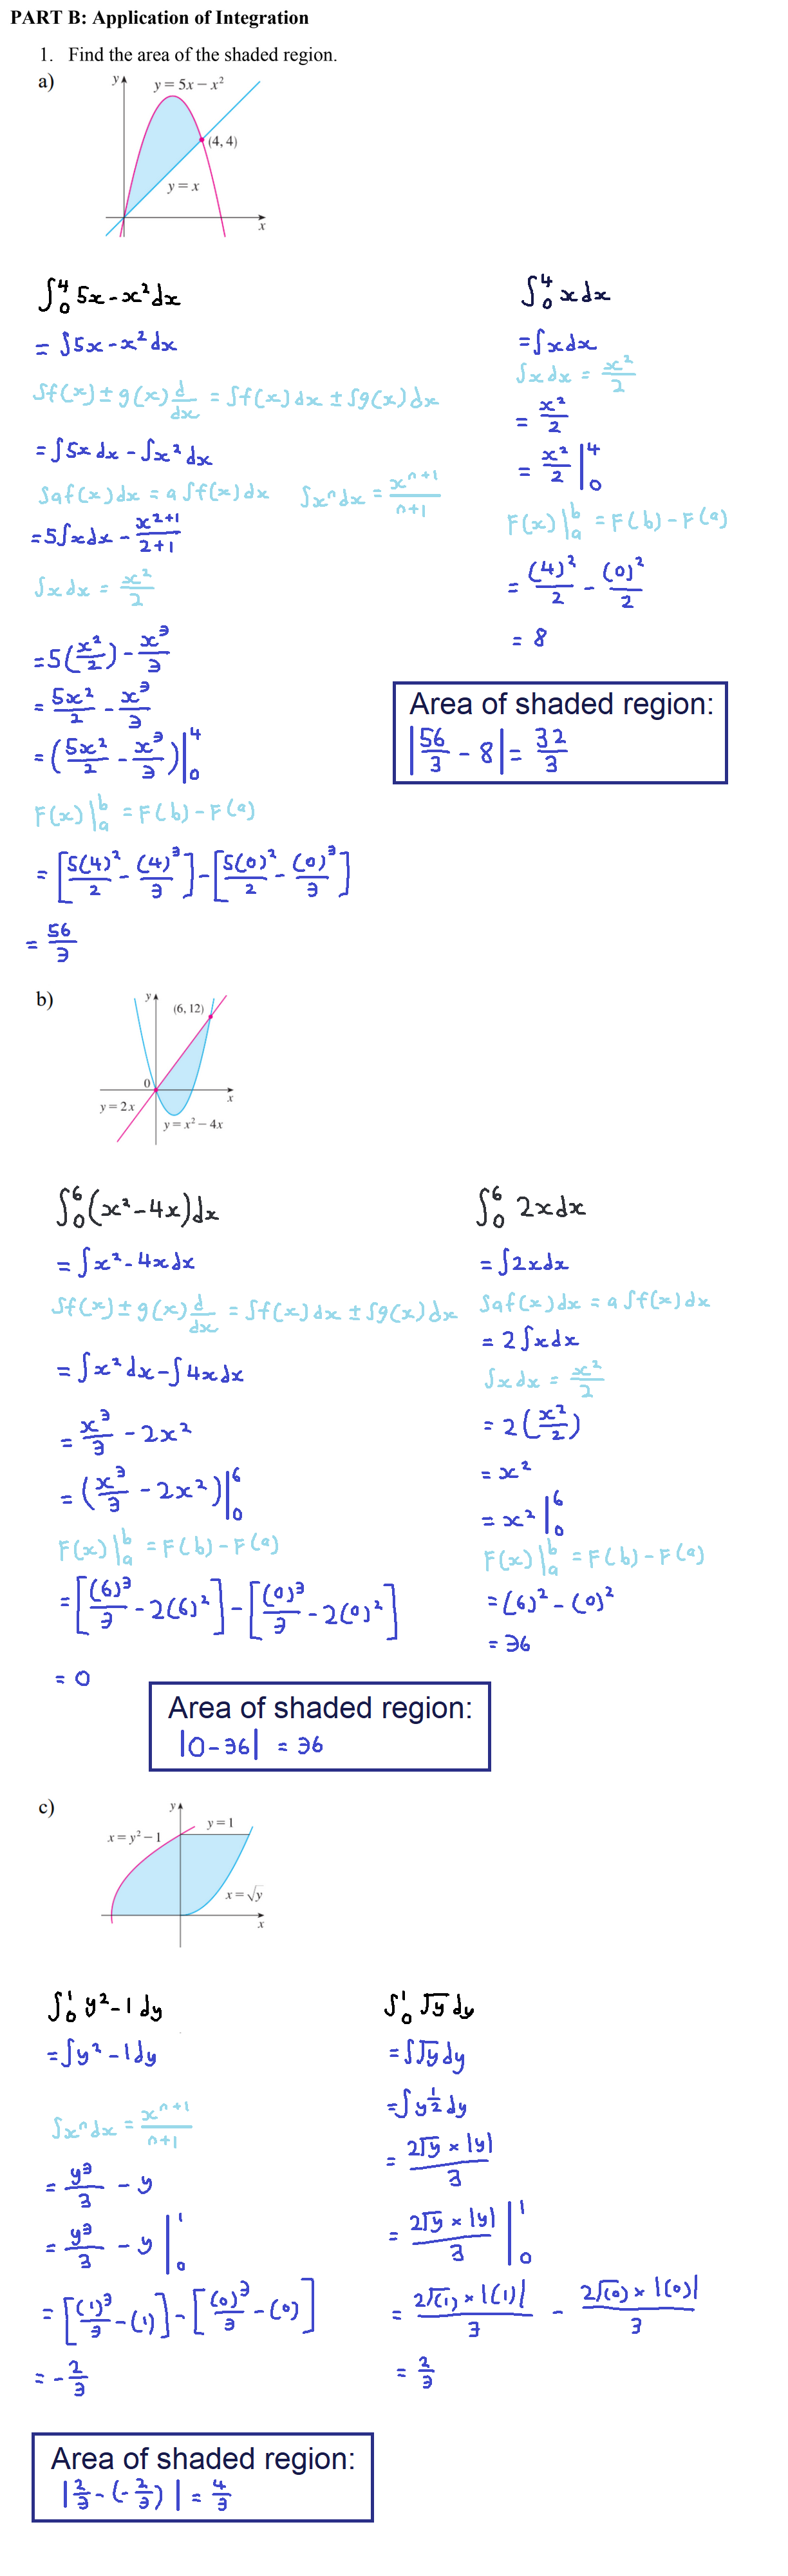 PART B: Application of Integration
1. Find the area of the shaded region.
a)
y
y = 5x − x²
(4, 4)
y = x
x
∫₀⁴ 5x - x² dx
= ∫5x - x² dx
∫f(x) ± g(x) d/dx = ∫f(x) dx ± ∫g(x) dx
= ∫5x dx - ∫x² dx
∫af(x) dx = a ∫f(x) dx ∫xⁿ dx = xⁿ⁺¹/n+1
= 5∫x dx - x²⁺¹/2+1
∫x dx = x²/2
= 5(x²/2) - x³/3
= 5x²/2 - x³/3
= (5x²/2 - x³/3)|₀⁴
F(x)|ₐᵇ = F(b) - F(a)
= [5(4)²/2 - (4)³/3] - [5(0)²/2 - (0)³/3]
= 56/3
∫₀⁴ x dx
= ∫x dx
∫x dx = x²/2
= x²/2
= x²/2 |₀⁴
F(x)|ₐᵇ = F(b) - F(a)
= (4)²/2 - (0)²/2
= 8
Area of shaded region:
|56/3 - 8| = 32/3
b)
y
(6, 12)
0
x
y = 2x
y = x² − 4x
∫₀⁶ (x² - 4x) dx
= ∫x² - 4x dx
∫f(x) ± g(x) d/dx = ∫f(x) dx ± ∫g(x) dx
= ∫x² dx - ∫4x dx
= x³/3 - 2x²
= (x³/3 - 2x²)|₀⁶
F(x)|ₐᵇ = F(b) - F(a)
= [(6)³/3 - 2(6)²] - [(0)³/3 - 2(0)²]
= 0
∫₀⁶ 2x dx
= ∫2x dx
∫af(x) dx = a ∫f(x) dx
= 2∫x dx
∫x dx = x²/2
= 2(x²/2)
= x²
= x² |₀⁶
F(x)|ₐᵇ = F(b) - F(a)
= (6)² - (0)²
= 36
Area of shaded region:
|0 - 36| = 36
c)
y
y = 1
x = y² − 1
x = √y
x
∫₀¹ y² - 1 dy
= ∫y² - 1 dy
∫xⁿ dx = xⁿ⁺¹/n+1
= y³/3 - y
= y³/3 - y |₀¹
= [(1)³/3 - (1)] - [(0)³/3 - (0)]
= -2/3
∫₀¹ √y dy
= ∫√y dy
= ∫y^1/2 dy
= 2√y × |y|/3
= 2√y × |y|/3 |₀¹
= 2√(1) × |(1)|/3 - 2√(0) × |(0)|/3
= 2/3
Area of shaded region:
|2/3 - (-2/3)| = 4/3